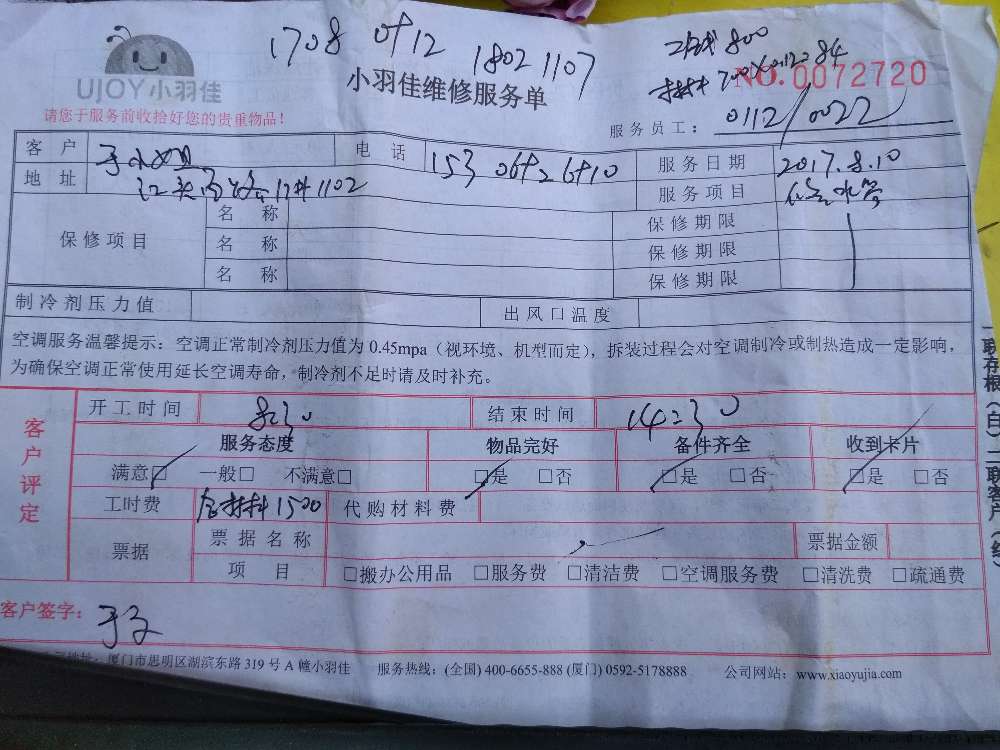 1708 0412 1802 1107
工钱 800
材料 700×0.12=84
UJOY小羽佳
小羽佳维修服务单
NO.0072720
请您于服务前收拾好您的贵重物品！
服务员工： 0112/0022
客户 于小姐 电话 服务日期 2017.8.10
地址 1102 服务项目 水管
保修项目 名称 保修期限
名称 保修期限
名称 保修期限
制冷剂压力值 出风口温度
空调服务温馨提示：空调正常制冷剂压力值为 0.45mpa（视环境、机型而定），拆装过程会对空调制冷或制热造成一定影响，
为确保空调正常使用延长空调寿命，制冷剂不足时请及时补充。
客户评定
开工时间 8:30 结束时间 14:30
服务态度 物品完好 备件齐全 收到卡片
满意□ 一般□ 不满意□ □是 □否 □是 □否 □是 □否
工时费 含材料1500 代购材料费
票据 票据名称 票据金额
项目 □搬办公用品 □服务费 □清洁费 □空调服务费 □清洗费 □疏通费
客户签字：
地址：厦门市思明区湖滨东路 319 号 A 幢小羽佳 服务热线：(全国) 400-6655-888 (厦门) 0592-5178888 公司网站：www.xiaoyujia.com
一联存根（白）二联客户（红）